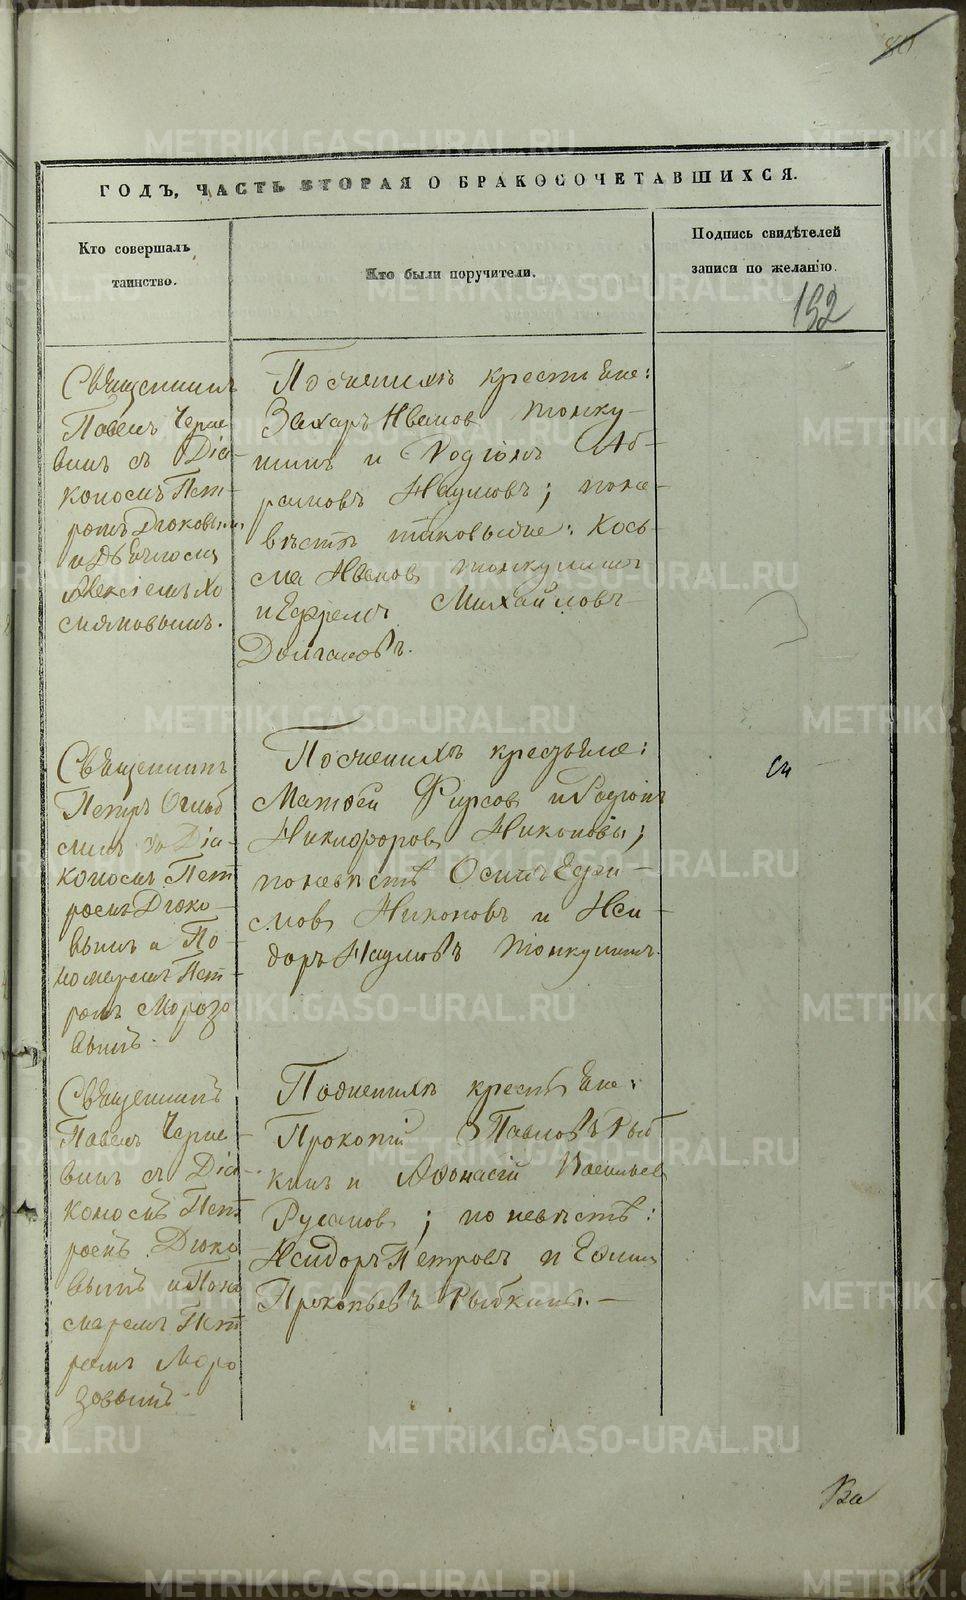 ГОДЪ, ЧАСТЬ ВТОРАЯ О БРАКОСОЧЕТАВШИХСЯ.
Кто совершалъ
таинство.
Кто были поручители.
Подпись свидѣтелей
записи по желанію.
192
Священникъ
Павелъ Черне
винъ съ Діа-
кономъ Пет-
ромъ Дюковымъ
и Дьячкомъ
Алексѣемъ Хо
мяковымъ.
По женихѣ крестьяне:
Захаръ Ивановъ Тонку-
шинъ и Родіонъ Аб-
рамовъ Наумовъ; по не-
вѣстѣ таковыеже: Кось-
ма Ивановъ Тонкушинъ
и Ефремъ Михайловъ
Долгановъ.
Священникъ
Петръ
съ Діа-
кономъ Пет
ромъ Дюко-
вымъ и По-
номаремъ Пет-
ромъ Морозо
вымъ.
По женихѣ крестьяне:
Матвѣй Фирсовъ и Родіонъ
Никифоровъ Никоновы;
по невѣстѣ Осипъ Ефи-
мовъ Никоновъ и Иси-
доръ Наумовъ Тонкушинъ.
Священникъ
Павелъ Черне-
винъ съ Діа-
кономъ Пет
ромъ Дюко
вымъ и Поно
маремъ Пет
ромъ Моро
зовымъ.
По женихѣ крестьяне:
Прокопій Павловъ Рыб
кинъ и Афонасій Васильев
Русановъ; по невѣстѣ:
Исидоръ Петровъ и Ефимъ
Прокопьевъ Рыбкины.
METRIKI.GASO-URAL.RU